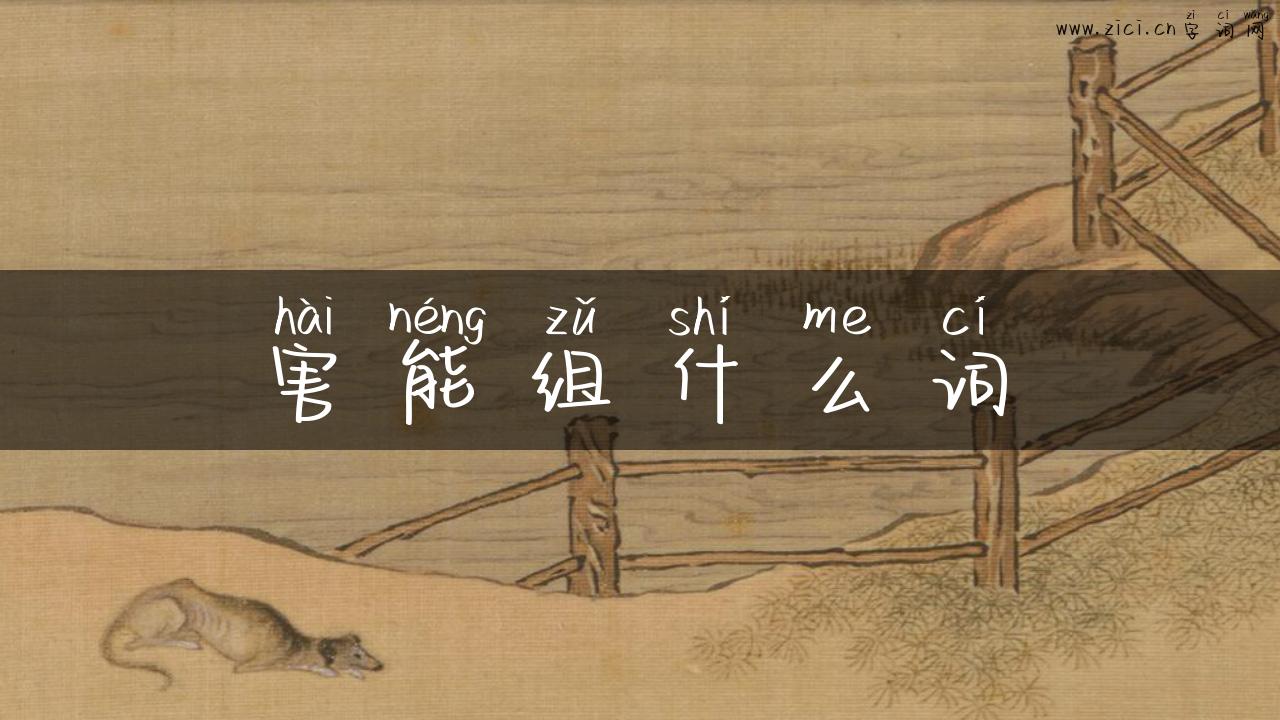 zi ci wang
www.zici.cn字词网
hài néng zǔ shí me cí
害能组什么词